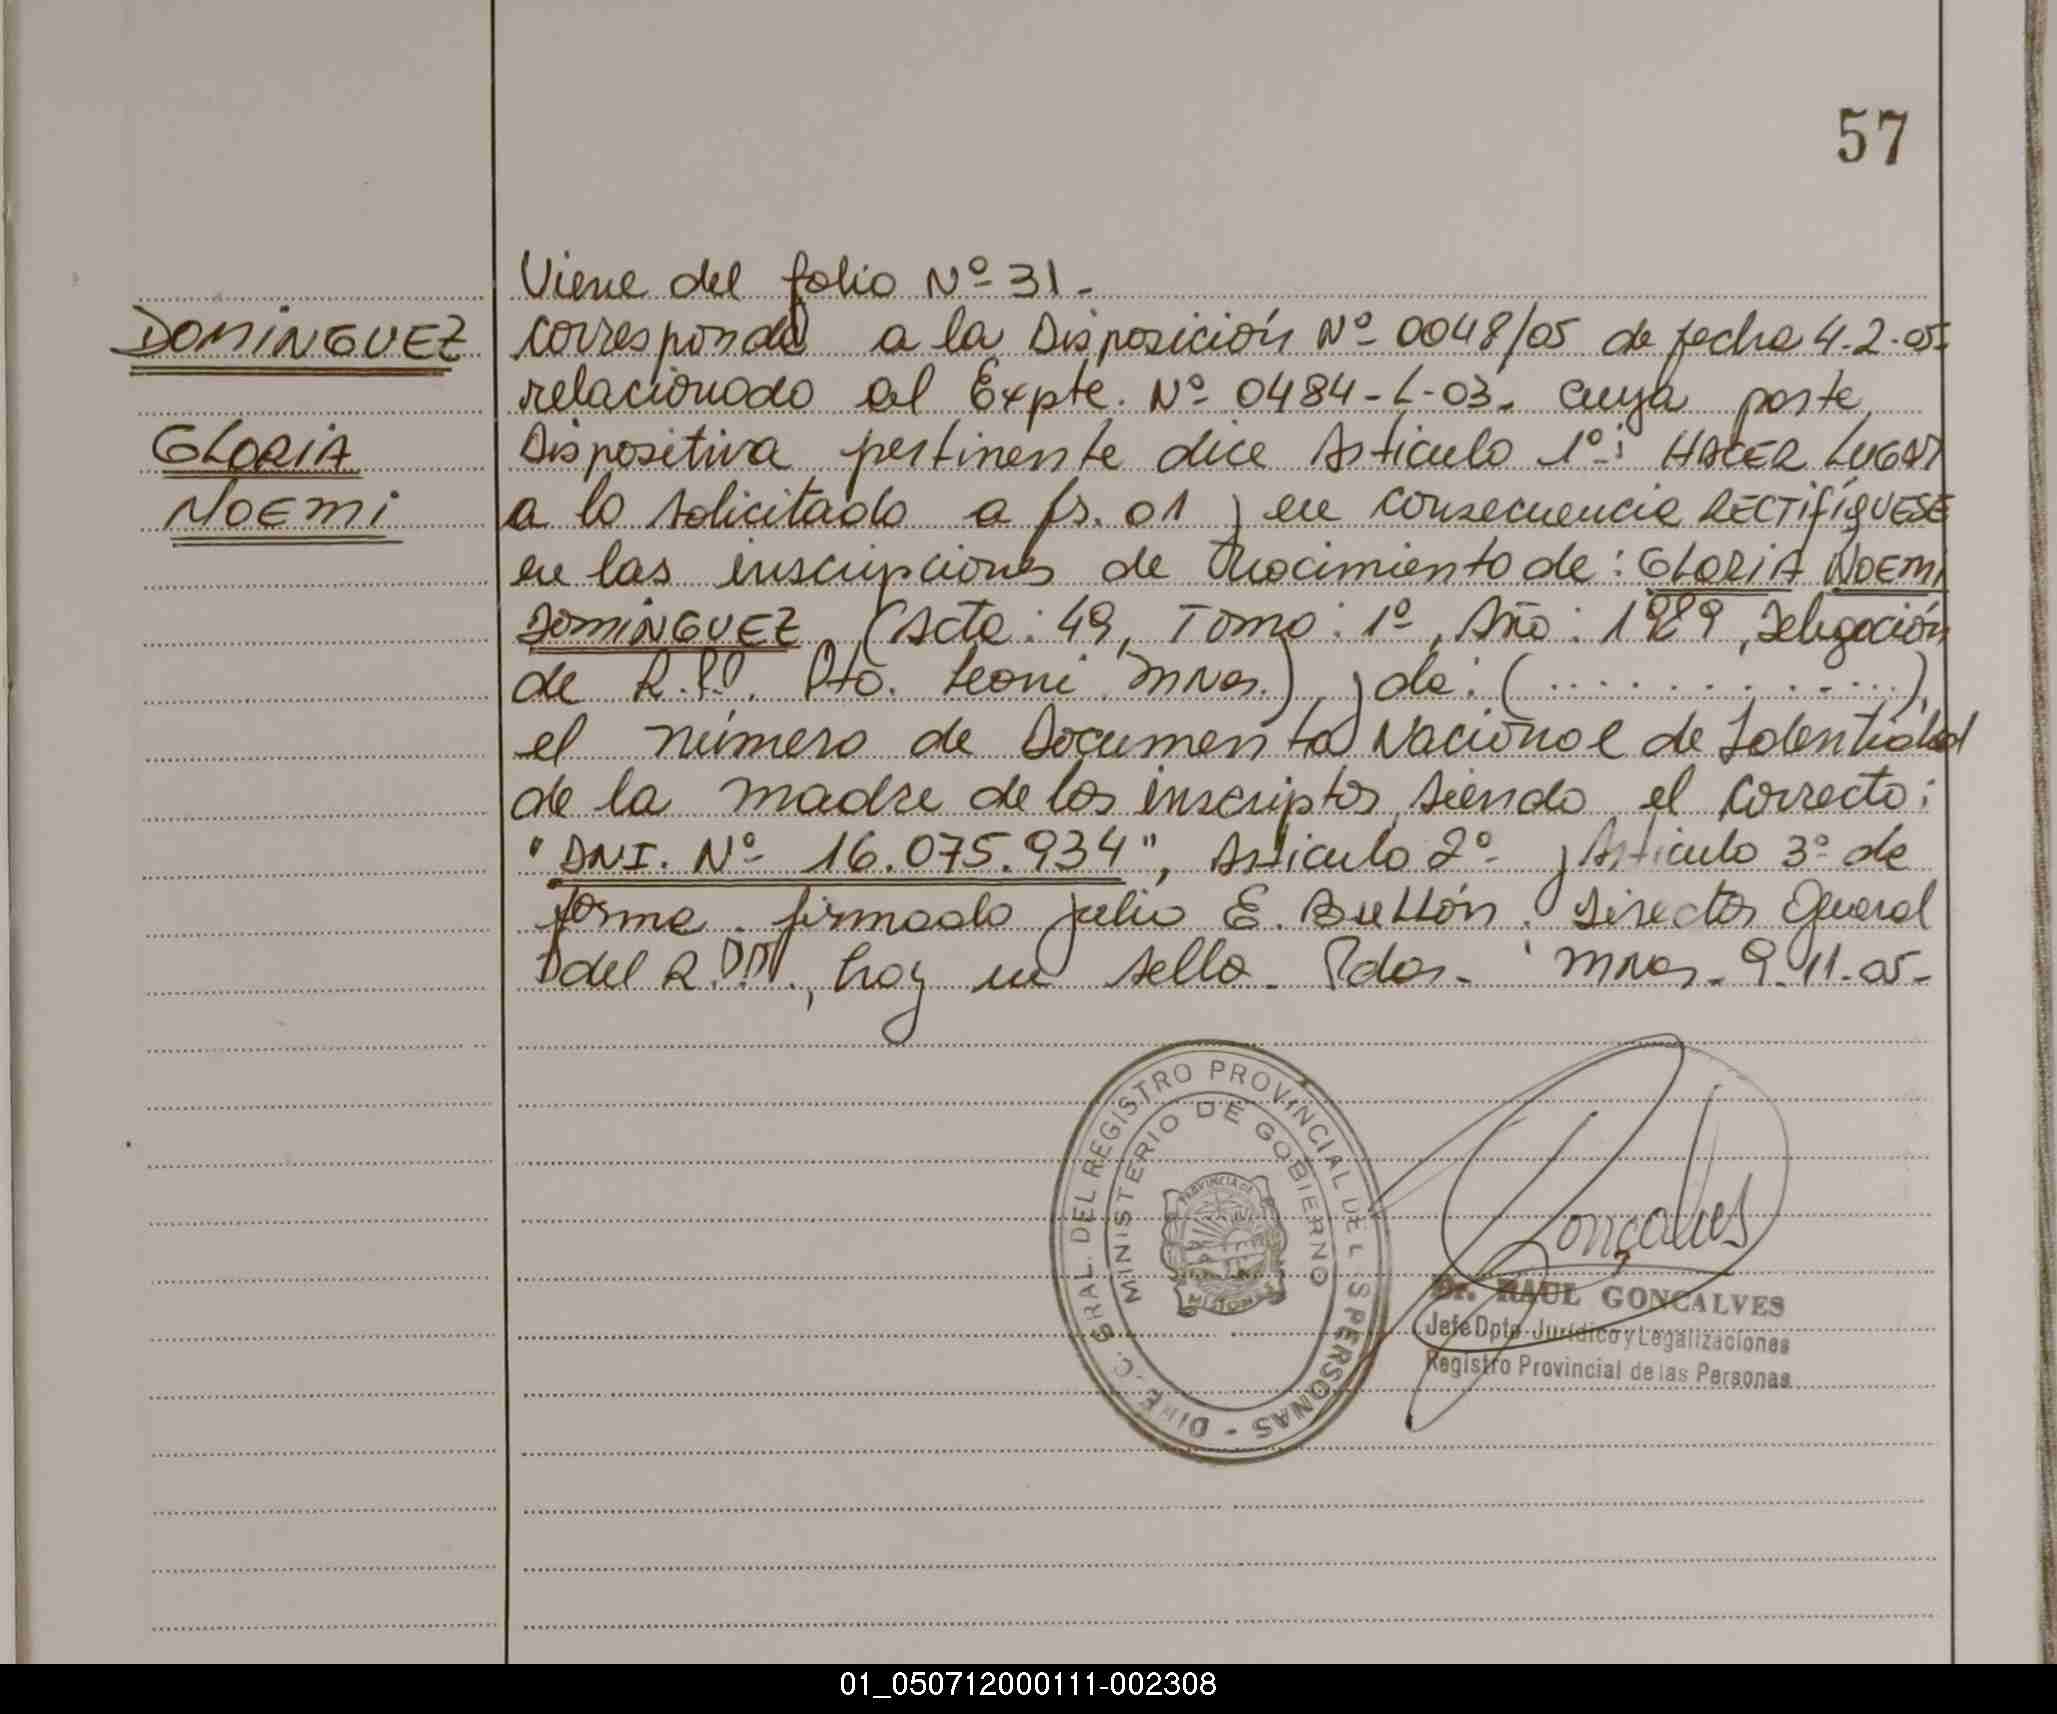 57
Viene del folio Nº 31-
DOMINGUEZ
corresponde a la Disposición Nº 0048/05 de fecha 4-2-05-
relacionado al Expte. Nº 0484-L-03. cuya parte
GLORIA
Dispositiva pertinente dice Articulo 1º: HACER LUGAR
NOEMI
a lo solicitado a fs. 01 y en consecuencia RECTIFÍQUESE
en las inscripciones de Nacimiento de: GLORIA NOEMI
DOMINGUEZ (Acta: 49, Tomo: 1º, Año: 1989, Delegación
de R.P.P. Pto. Leoni Mnes.) y de: (..............),
el número de Documento Nacional de Identidad
de la madre de los inscriptos, siendo el correcto:
"DNI. Nº 16.075.934", Articulo 2º y Articulo 3º de
forma. firmado Julio E. Director General
del R.P.P., hay un sello. Pdas- Mnes- 9-11-05-
DIREC. GRAL. DEL REGISTRO PROVINCIAL DE L S PERSONAS -
MINISTERIO DE GOBIERNO
PROVINCIA DE
MISIONES
Goncalves
Dr. RAUL GONCALVES
Jefe Dpto. Jurídico y Legalizaciones
Registro Provincial de las Personas
01_050712000111-002308